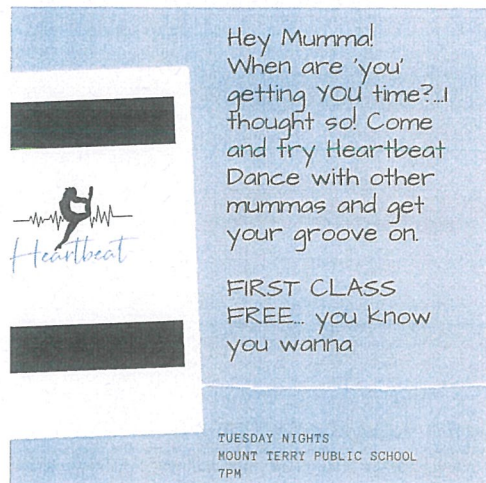 Hey Mumma!
When are 'you'
getting YOU time?...I
thought so! Come
and try Heartbeat
Dance with other
mummas and get
your groove on.
FIRST CLASS
FREE... you know
you wanna
Heartbeat
TUESDAY NIGHTS
MOUNT TERRY PUBLIC SCHOOL
7PM